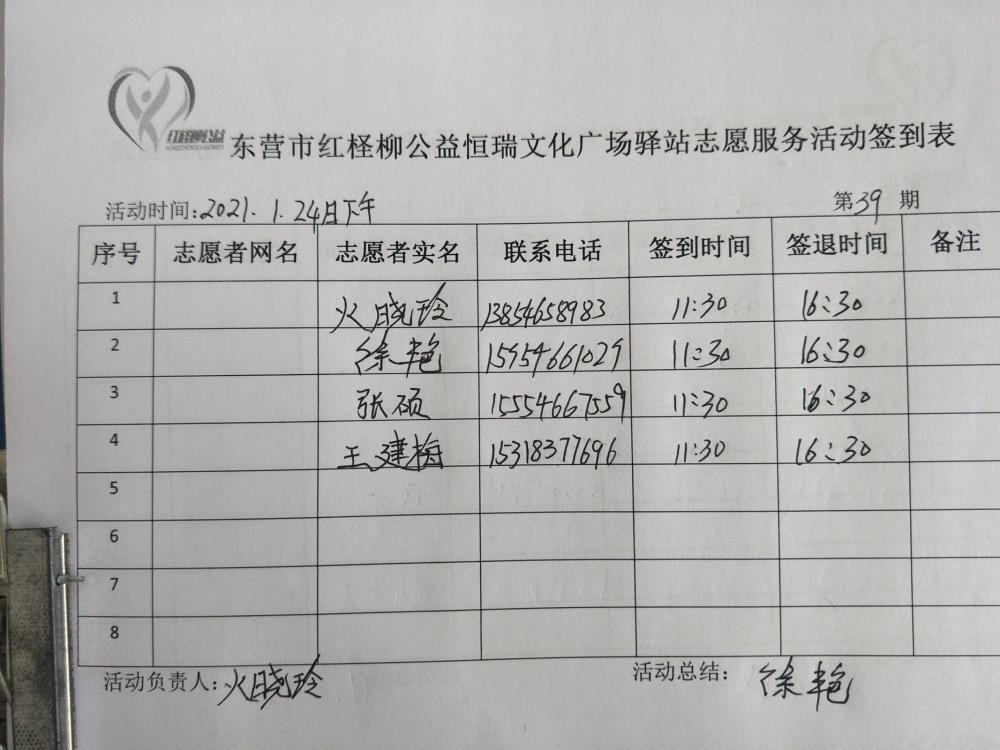 红柽柳公益
东营市红柽柳公益恒瑞文化广场驿站志愿服务活动签到表
活动时间:2021.1.24日下午 第39期
序号 志愿者网名 志愿者实名 联系电话 签到时间 签退时间 备注
1 火晓玲 13854658983 11:30 16:30
2 徐艳 15954661029 11:30 16:30
3 张硕 15554667559 11:30 16:30
4 王建梅 15318377696 11:30 16:30
5
6
7
8
活动负责人:火晓玲 活动总结:徐艳